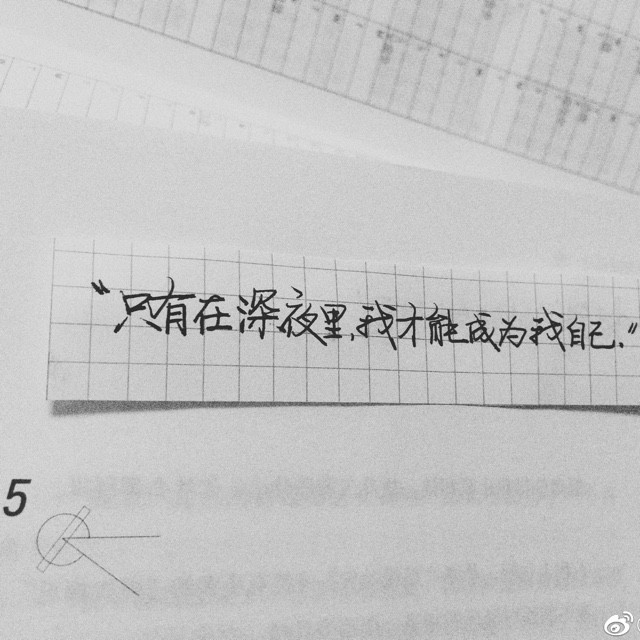 “只有在深夜里,我才能成为我自己.”
5